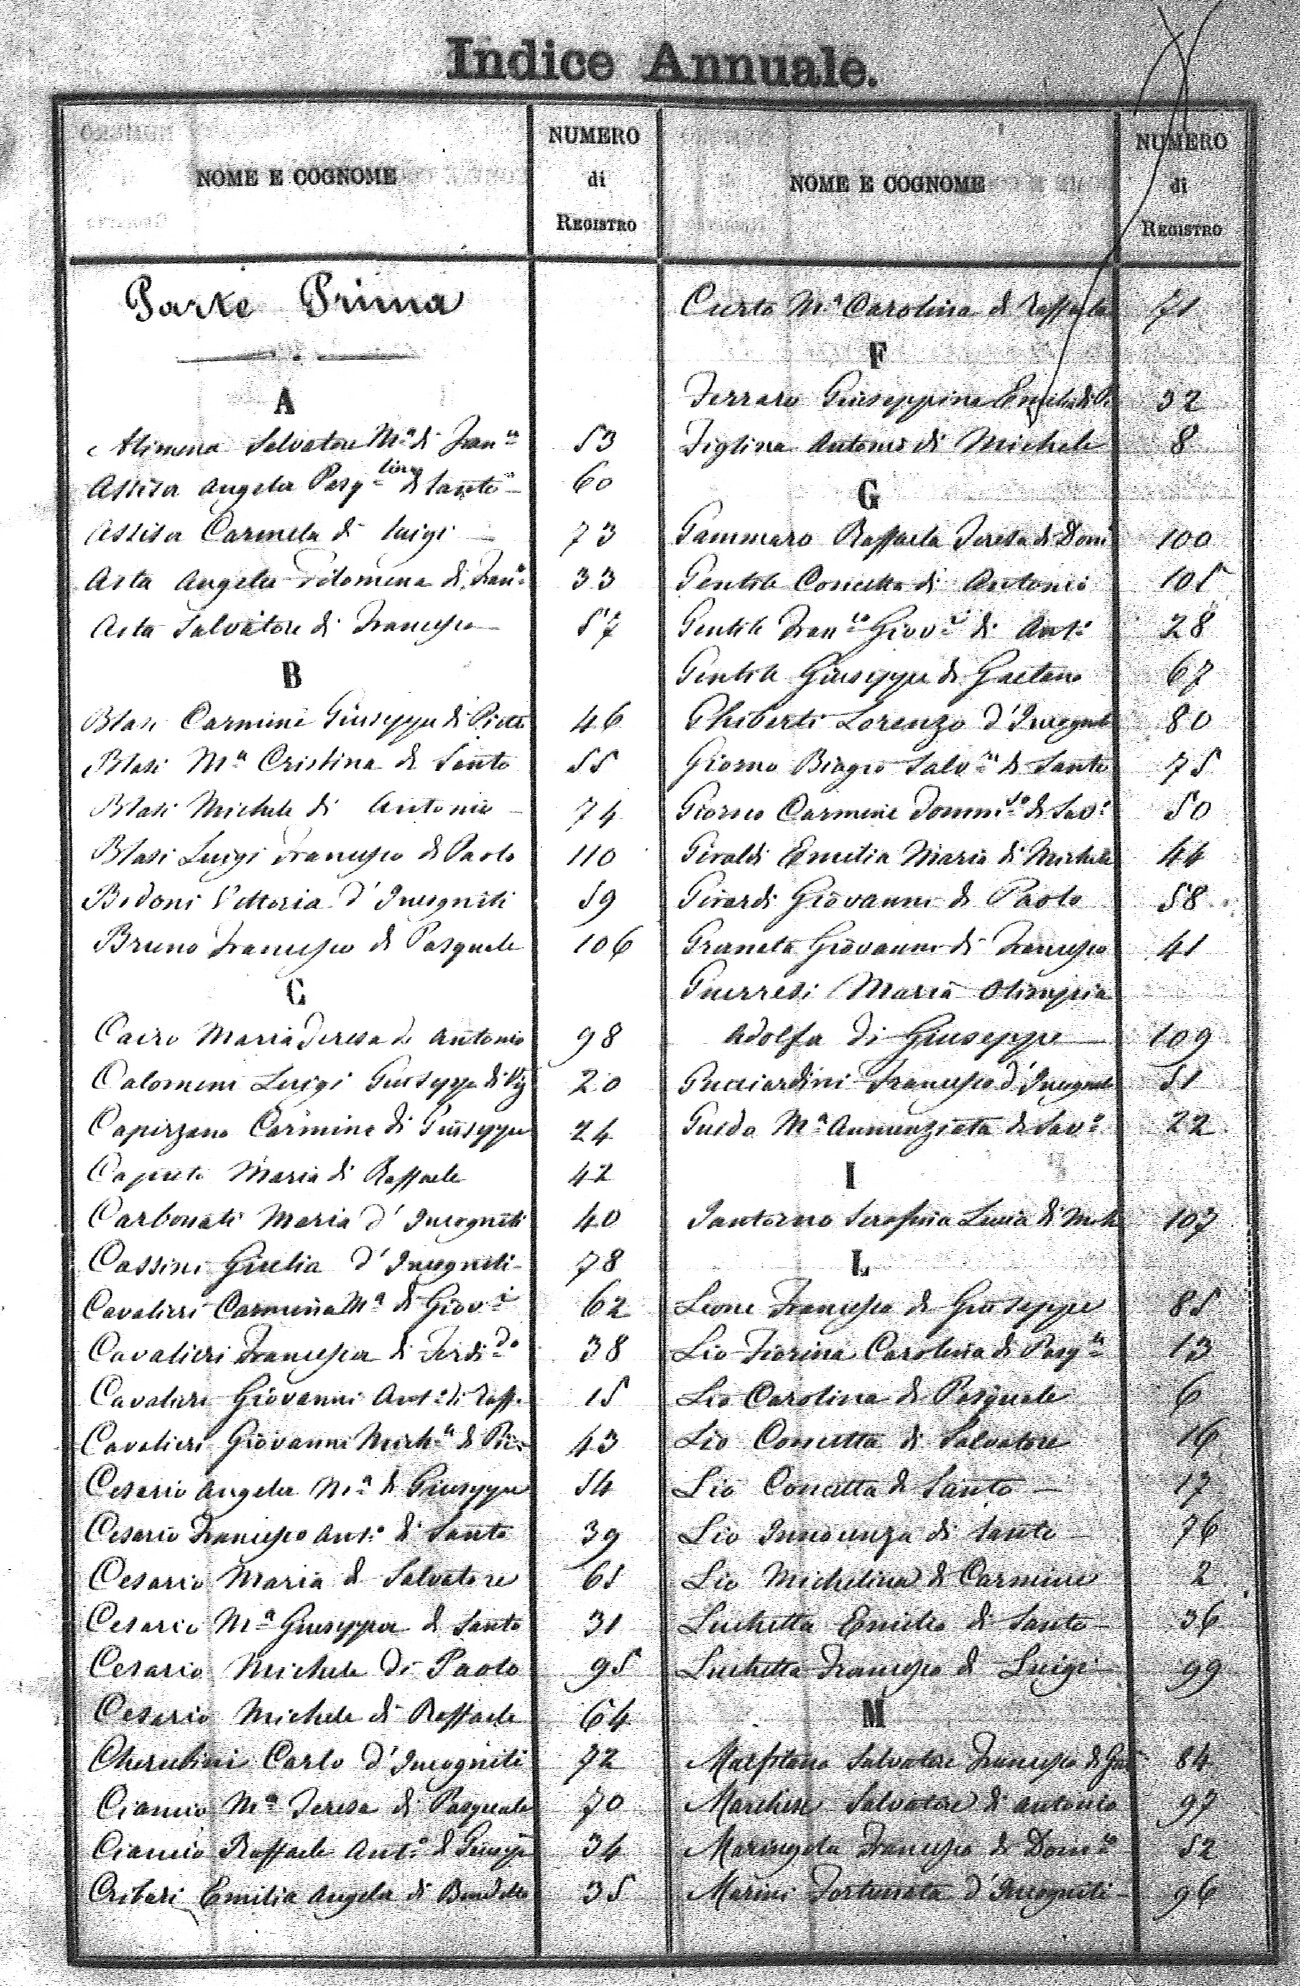 Indice Annuale.
NOME E COGNOME
NUMERO
di
REGISTRO
Parte Prima
A
Alimena Salvatore Mª di Franco 53
Assisa Angela Pasqlina di Santo 60
Assisa Carmela di Luigi 73
Asta Angela Filomena di Frano 33
Asta Salvatore di Francesco 57
B
Blasi Carmine Giuseppe di Pietro 46
Blasi Mª Cristina di Santo 55
Blasi Michele di Antonio 74
Blasi Luigi Francesco di Paolo 110
Bidoni Vittoria d'Incogniti 59
Bruno Francesco di Pasquale 106
C
Cairo Maria Teresa di Antonio 98
Calomeni Luigi Giuseppe di 20
Capizzano Carmine di Giuseppe 24
Caputo Maria di Raffaele 42
Carbonati Maria d'Incogniti 40
Cassini Giulia d'Incogniti 78
Cavalieri Carmina Mª di Giovi 62
Cavalieri Francesca di Ferdido 38
Cavalieri Giovanni Anto di Raffe 15
Cavalieri Giovanni Michele di 43
Cesario Angela Mª di Giuseppe 54
Cesario Francesco Anto di Santo 39
Cesario Maria di Salvatore 65
Cesario Mª Giuseppa di Santo 31
Cesario Michele di Paolo 95
Cesario Michele di Raffaele 64
Cherubini Carlo d'Incogniti 72
Ciancio Mª Teresa di Pasquale 70
Ciancio Raffaele Anto di Giusepe 34
Cribari Emilia Angela di Benedetto 35
NOME E COGNOME
NUMERO
di
REGISTRO
Curto Mª Carolina di Raffaele 71
F
Ferraro Giuseppina Emilia di 32
Figlina Antonio di Michele 8
G
Gammaro Raffaela Teresa di Domo 100
Gentile Concetta di Antonio 105
Gentile Franco Giovi di Anto 28
Gentile Giuseppe di Gaetano 67
Ghiberti Lorenzo d'Incogniti 80
Giorno Biagio Salvre di Santo 75
Giorno Carmine Domco di Salv 50
Giraldi Emilia Maria di Michele 44
Girardi Giovanni di Paolo 58
Granata Giovanni di Francesco 41
Guerresi Maria Olimpia
Adolfa di Giuseppe 109
Guicciardini Francesco d'Incogniti 51
Guido Mª Annunziata di Salv 22
I
Iantorno Serafina Lucia di Mich 107
L
Leone Francesca di Giuseppe 85
Lio Fiorina Carolina di Pasqle 13
Lio Carolina di Pasquale 6
Lio Concetta di Salvatore 16
Lio Concetta di Santo 17
Lio Innocenza di Santo 76
Lio Michelina di Carmine 2
Luchetta Emilio di Santo 36
Luchetta Francesco di Luigi 99
M
Malfitano Salvatore Francesco di 84
Marchese Salvatore di Antonio 97
Maringola Francesco di Domco 52
Marini Fortunata d'Incogniti 96